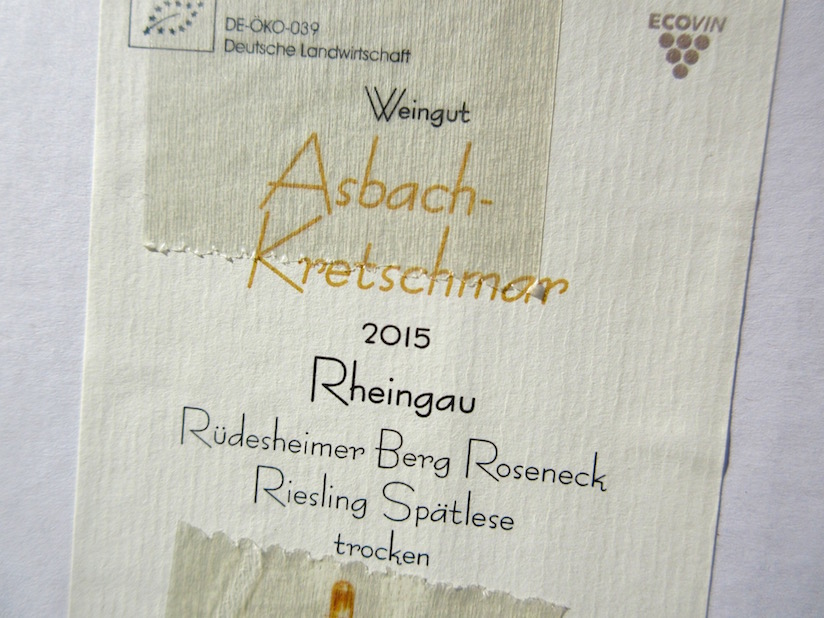 DE-ÖKO-039
Deutsche Landwirtschaft
ECOVIN
Weingut
Asbach-
Kretschmar
2015
Rheingau
Rüdesheimer Berg Roseneck
Riesling Spätlese
trocken